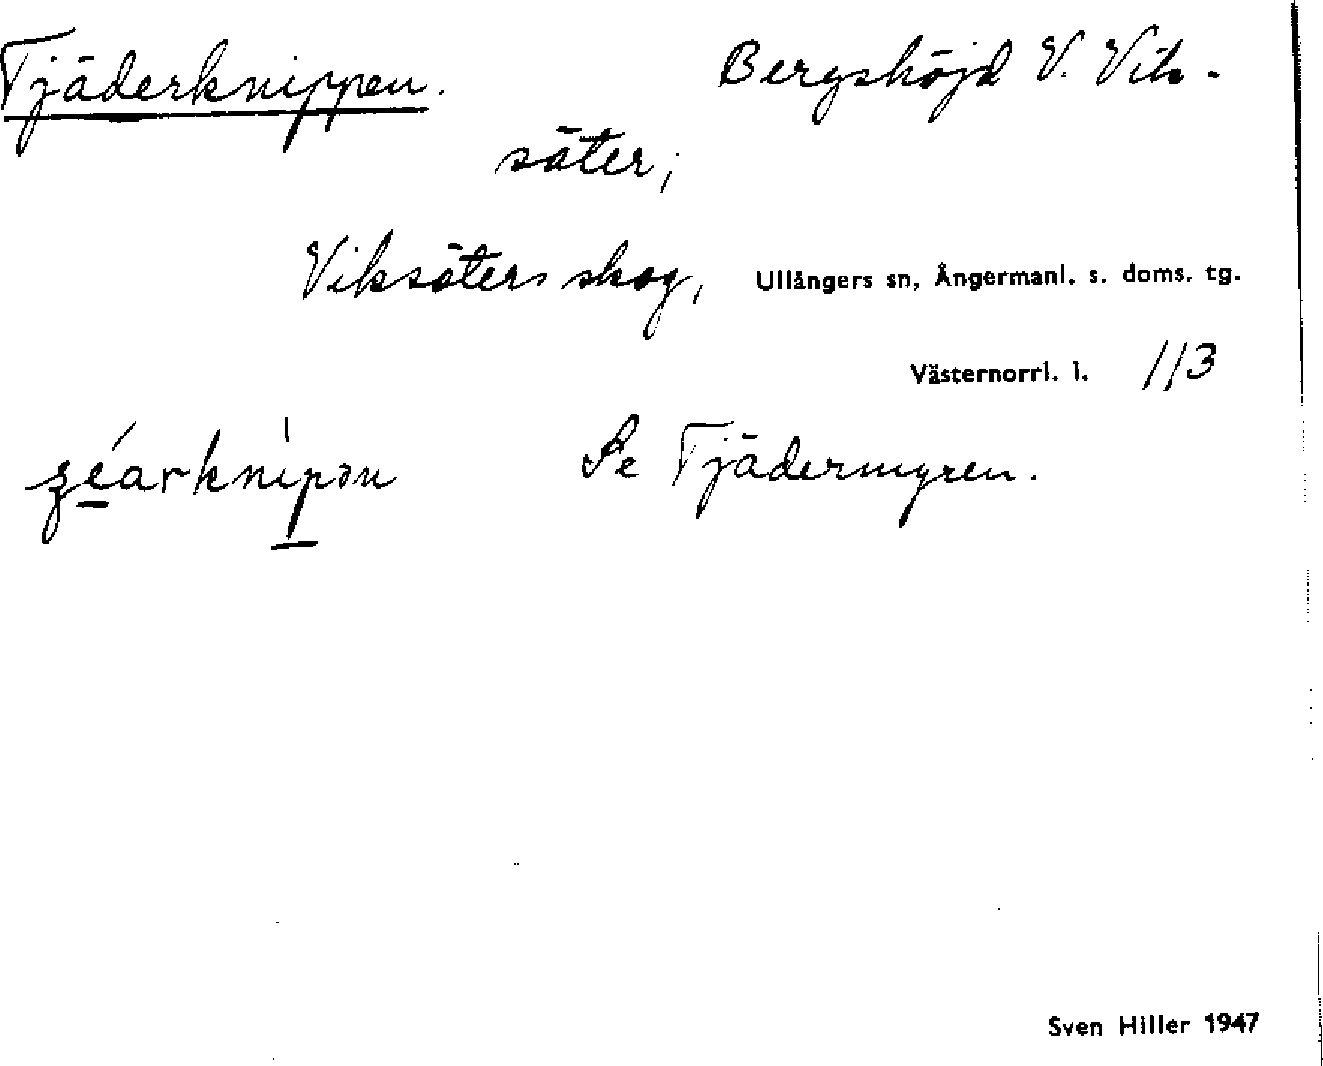 Tjäderknippen. Bergshöjd V. Vik-
säter,
Viksäters skog, Ullångers sn, Ångermanl. s. doms. tg.
Västernorrl. l. 113
Se Tjädermyren.
Sven Hiller 1947